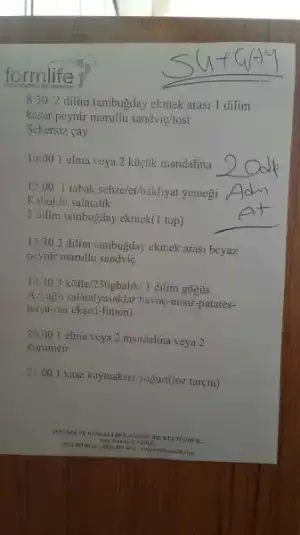 formlife
SU + ÇAY
8:30 2 dilim tambuğday ekmek arası 1 dilim
kaşar peynir marullu sandviç/tost
Şekersiz çay
10:00 1 elma veya 2 küçük mandalina
2 Odk
12:00 1 tabak sebze/et/bakliyat yemeği
Adm
Kabaklı salatalık
At
2 dilim tambuğday ekmek(1 top)
15:30 2 dilim tambuğday ekmek arası beyaz
peynir marullu sandviç
3 köfte/250gbalık/ 1 dilim göğüs
salata(yasaklar havuç-mısır-patates-
ekşisi-limon)
20:00 1 elma veya 2 mandalina veya 2
1 kase kaymaksız yoğurt(toz tarçın)